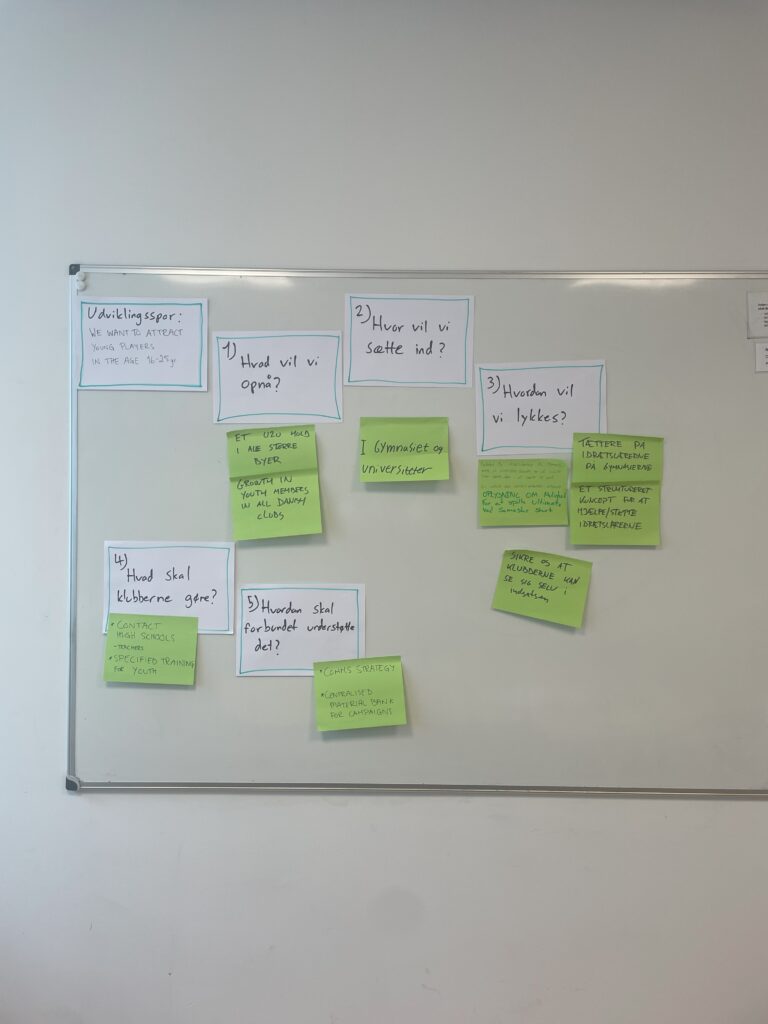 Udviklingsspor:
WE WANT TO ATTRACT
YOUNG PLAYERS
IN THE AGE 16-25 yr
1) Hvad vil vi
opnå?
ET U20 HOLD
I ALLE STØRRE
BYER
GROWTH IN
YOUTH MEMBERS
IN ALL DANISH
CLUBS
2) Hvor vil vi
sætte ind?
I Gymnasiet og
universiteter
3) Hvordan vil
vi lykkes?
OPLYSNING OM
for at spille Ultimate
ved
TÆTTERE PÅ
IDRÆTSLÆRERNE
PÅ GYMNASIERNE
ET STRUKTURERET
KONCEPT FOR AT
HJÆLPE/STØTTE
IDRÆTSLÆRERNE
SIKRE OS AT
KLUBBERNE KAN
SE SIG SELV I
indsatsen
4) Hvad skal
klubberne gøre?
• CONTACT
HIGH SCHOOLS
- TEACHERS
• SPECIFIED TRAINING
FOR YOUTH
5) Hvordan skal
forbundet understøtte
det?
• COMMS STRATEGY
• CENTRALISED
MATERIAL BANK
FOR CAMPAIGNS